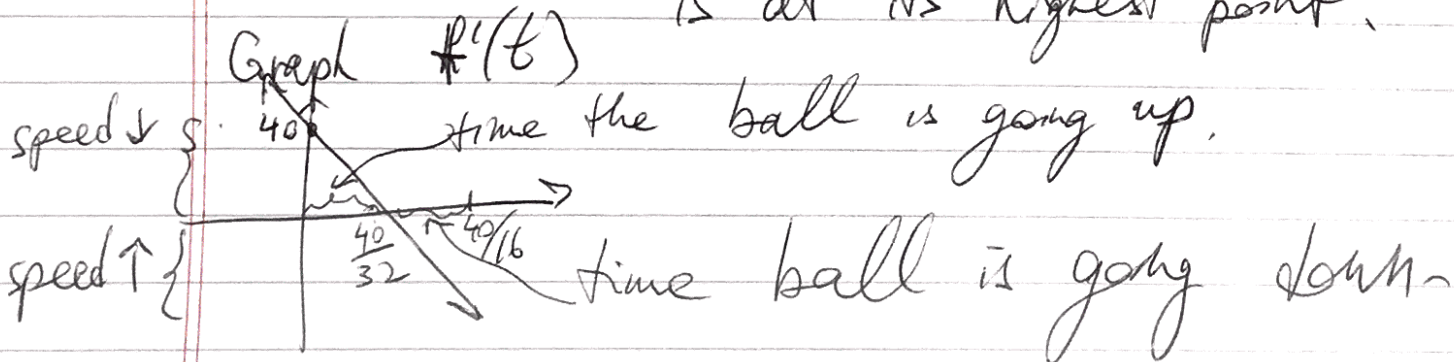 is at its highest point.
Graph f'(t)
speed ↓ 40 time the ball is going up.
40/32 40/16
speed ↑ time ball is going down